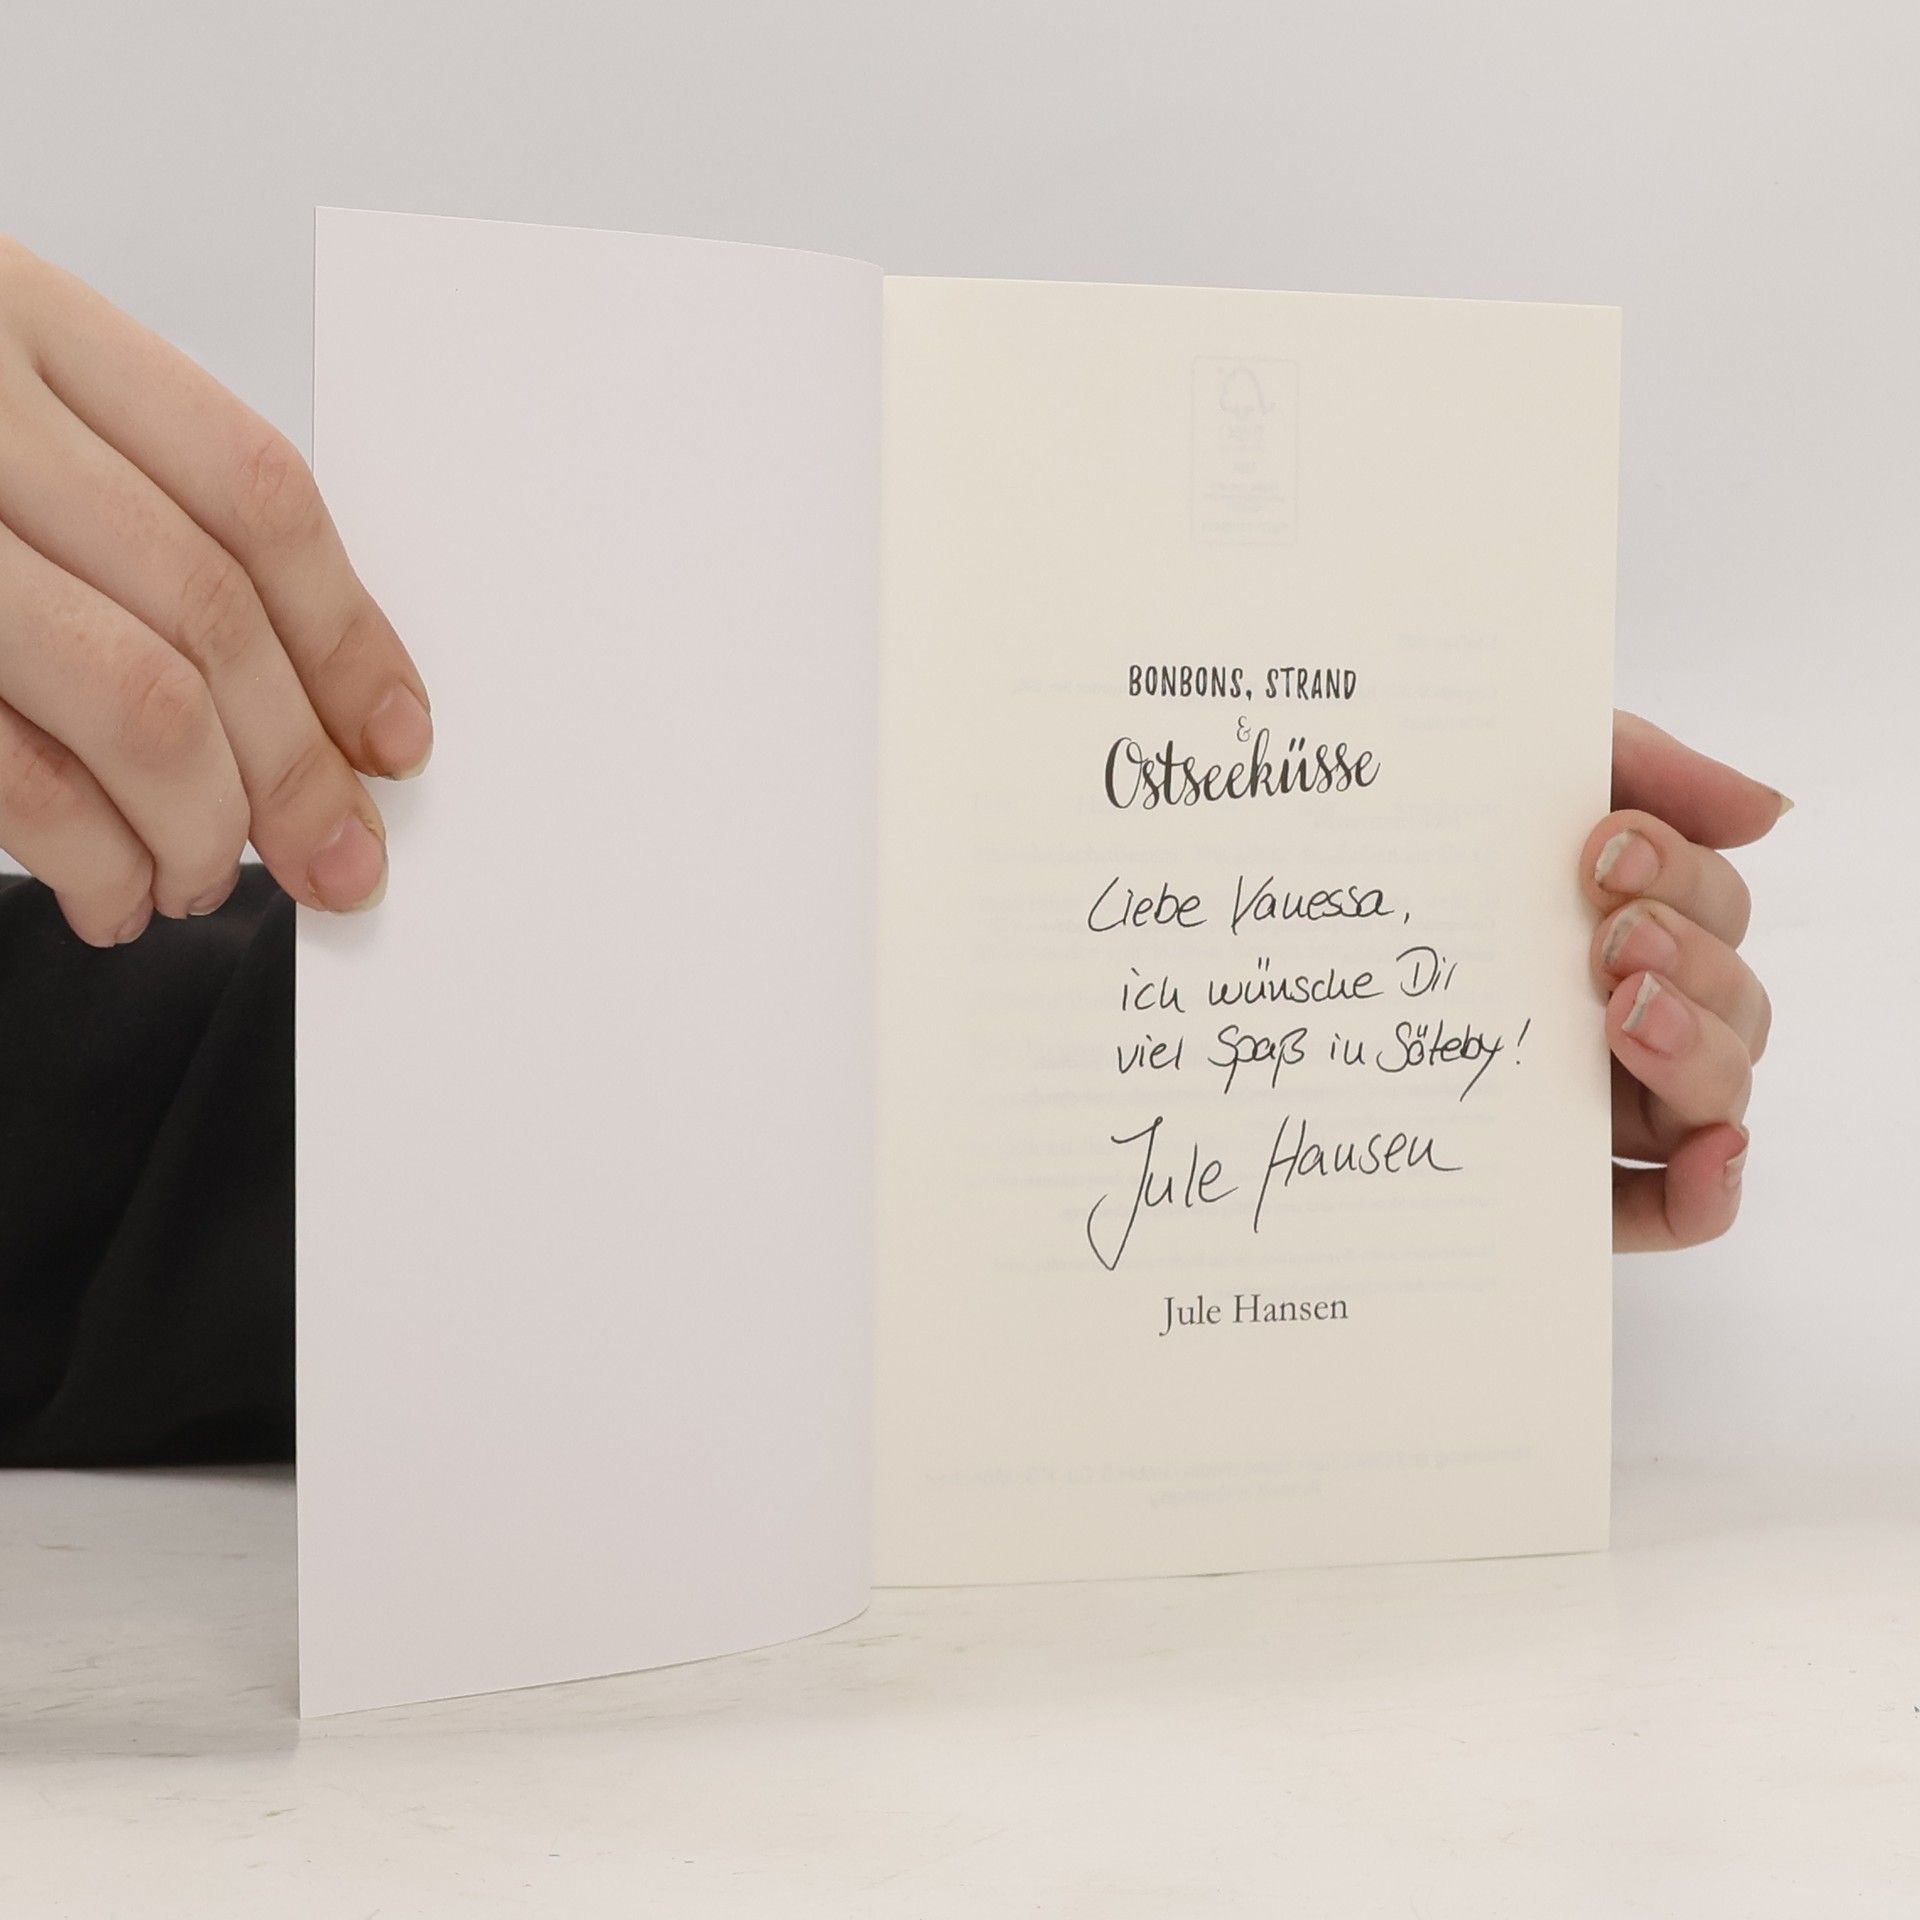 BONBONS, STRAND
&
Ostseeküsse
Liebe Vanessa,
ich wünsche Dir
viel Spaß in Söteby!
Jule Hansen
Jule Hansen